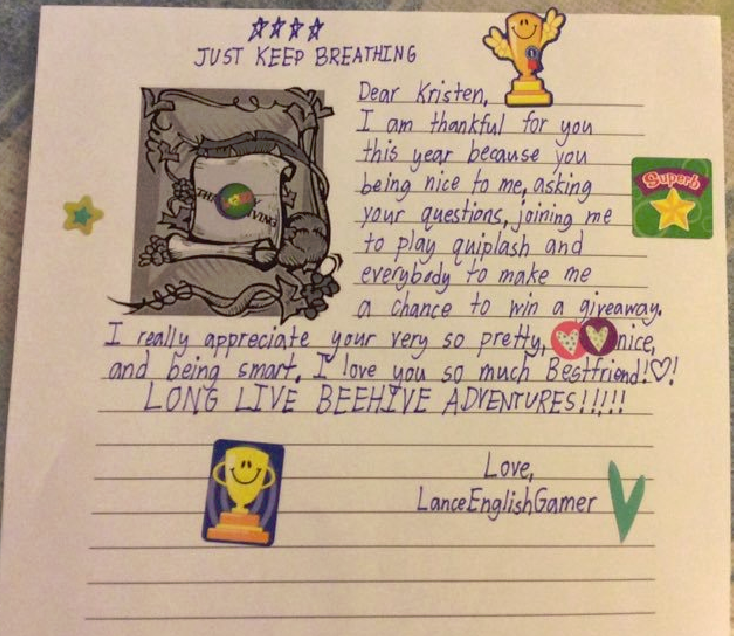 JUST KEEP BREATHING
Dear Kristen,
I am thankful for you
this year because you
being nice to me, asking
your questions, joining me
to play quiplash and
everybody to make me
a chance to win a giveaway.
I really appreciate your very so pretty, nice,
and being smart. I love you so much Bestfriend!♡!
LONG LIVE BEEHIVE ADVENTURES!!!!!
Love,
LanceEnglishGamer
Superb